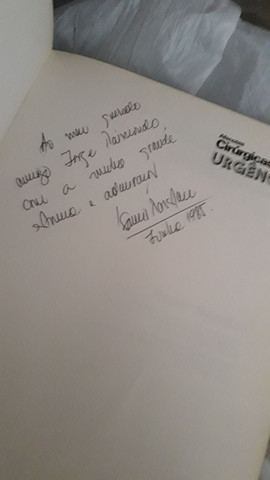 Ao meu prezado
amigo Jorge Raimundo
com a minha grande
estima e admiração
Junho 1985.
Cirúrgicas
URGÊN